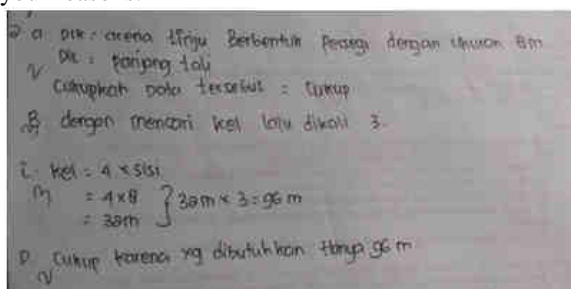 a. Dik: arena tinju Berbentuk Persegi dengan Ukuran 8m
Dit: Panjang tali
Cukupkah Data tersebut = Cukup
B dengan mencari kel lalu dikali 3.
i. kel = 4 x sisi
= 4x8 } 32m x 3 = 96 m
= 32m
D Cukup karena yg dibutuhkan Hanya 96 m